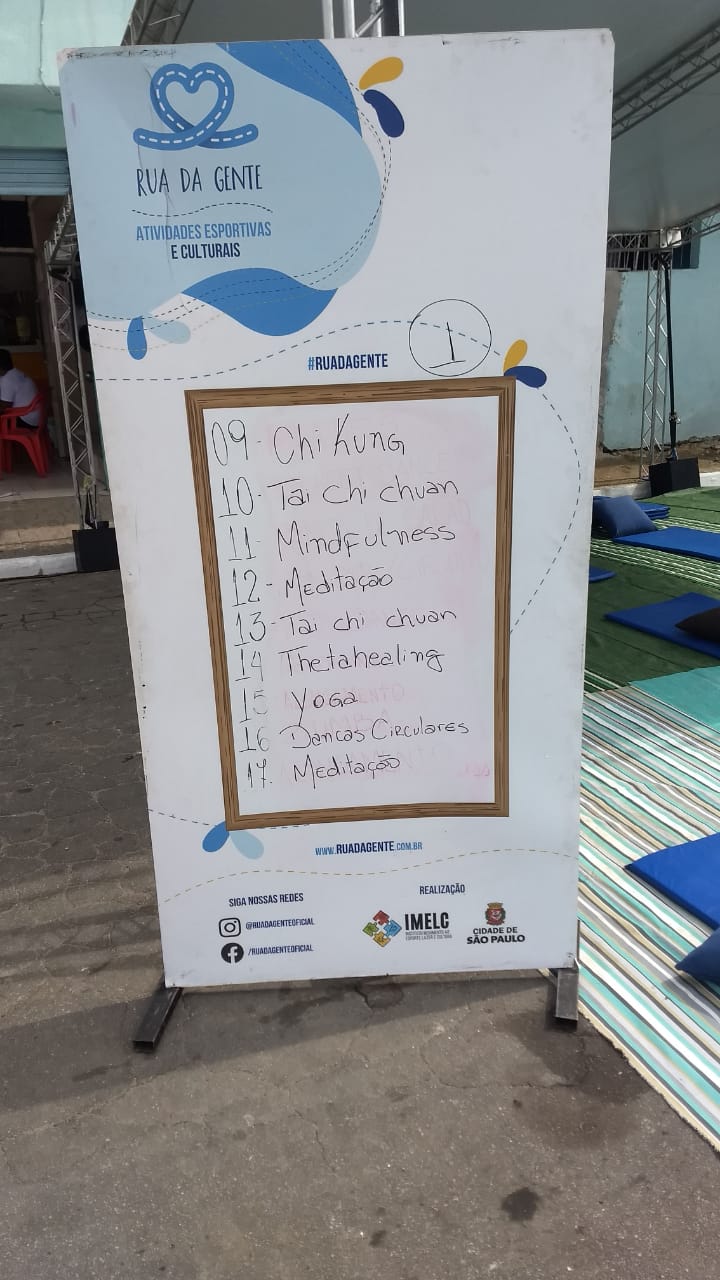 RUA DA GENTE
ATIVIDADES ESPORTIVAS
E CULTURAIS
#RUADAGENTE
1
09- Chi Kung
10- Tai chi chuan
11 Mindfulness
12- Meditação
13- Tai chi chuan
14 Thetahealing
15 Yoga
16 Danças Circulares
17. Meditação
WWW.RUADAGENTE.COM.BR
SIGA NOSSAS REDES
@RUADAGENTEOFICIAL
/RUADAGENTEOFICIAL
REALIZAÇÃO
IMELC
CIDADE DE
SÃO PAULO